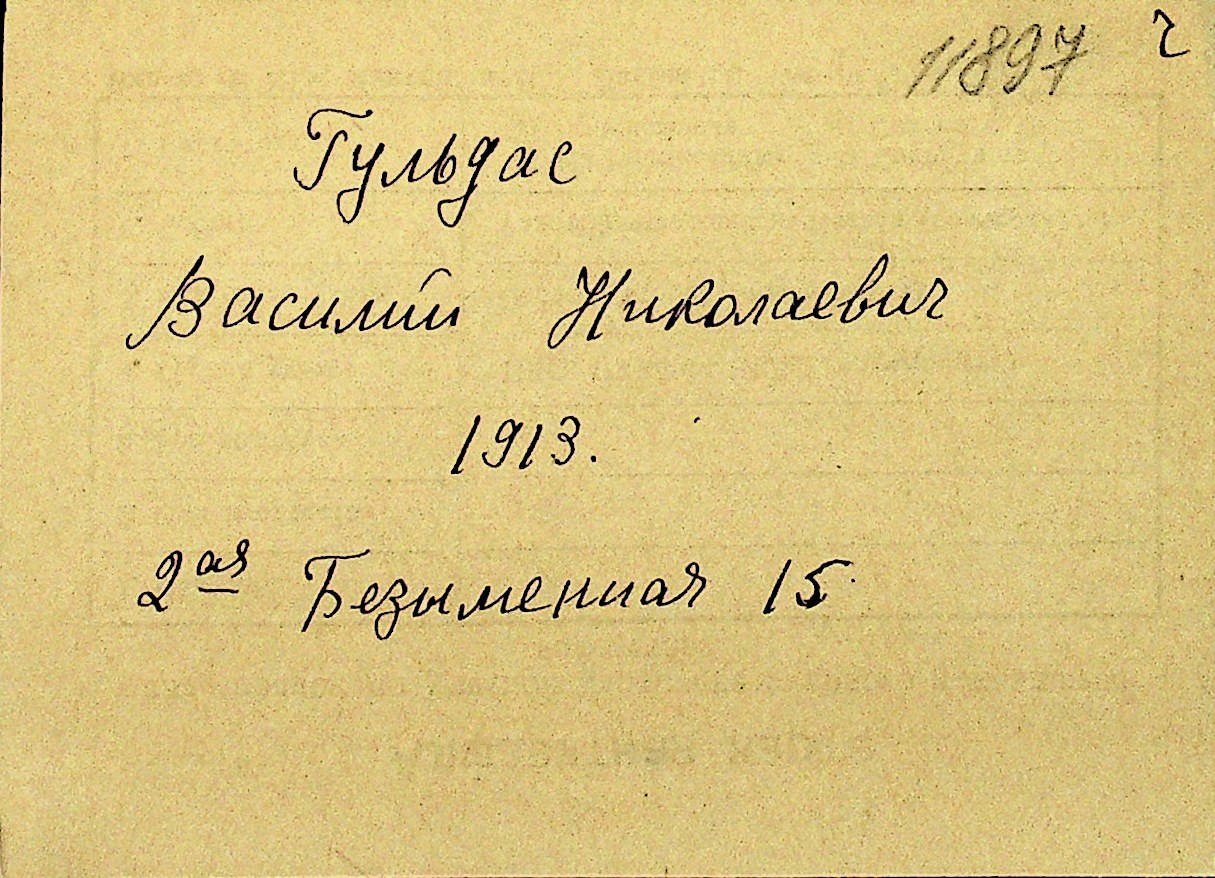 11897 г
Гульдас
Василий Николаевич
1913.
2ая Безыменная 15